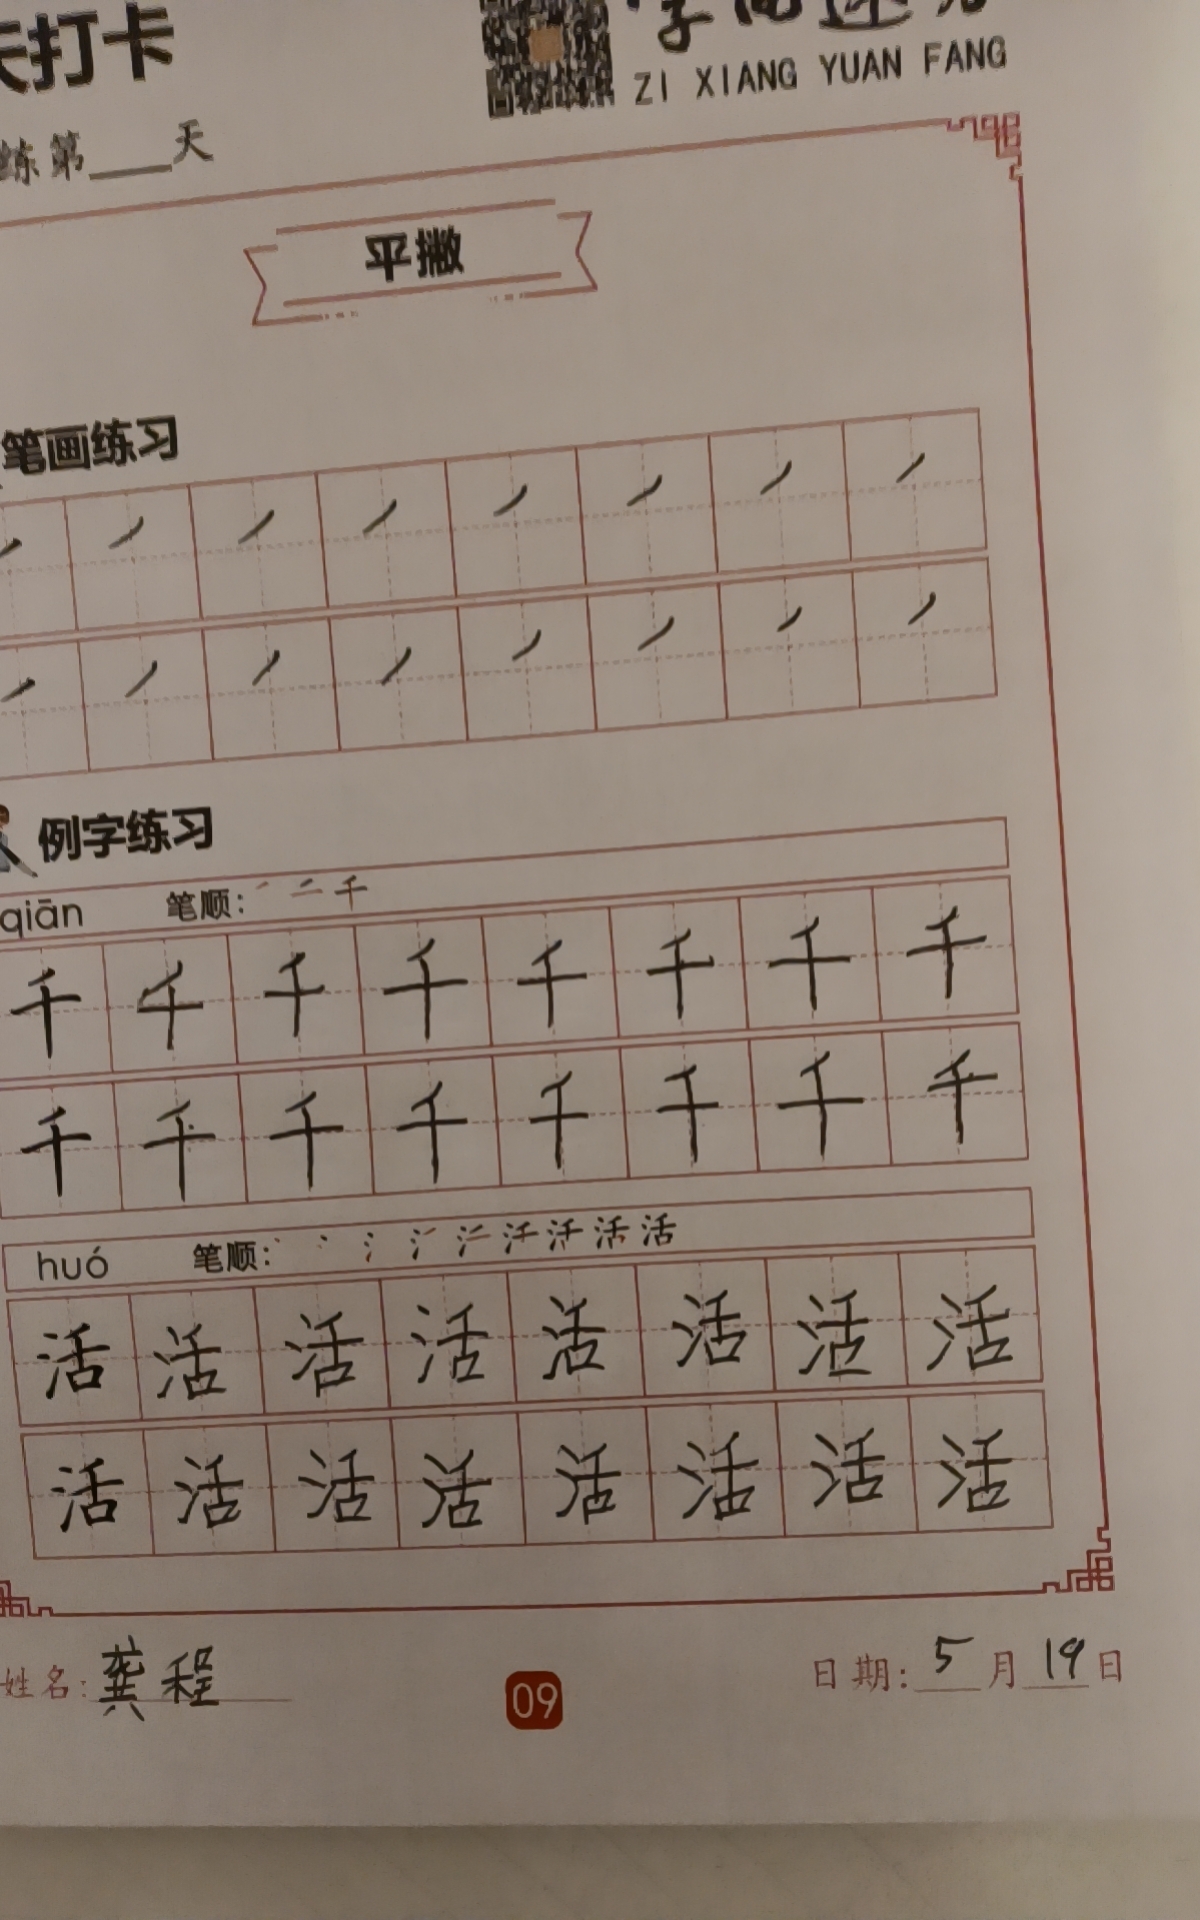 天打卡
ZI XIANG YUAN FANG
练第 天
平撇
笔画练习
例字练习
qiān 笔顺: 千
千 千 千 千 千 千 千 千
千 千 千 千 千 千 千 千
huó 笔顺: 活
活 活 活 活 活 活 活 活
活 活 活 活 活 活 活 活
姓名: 龚程
09
日期: 5月19日